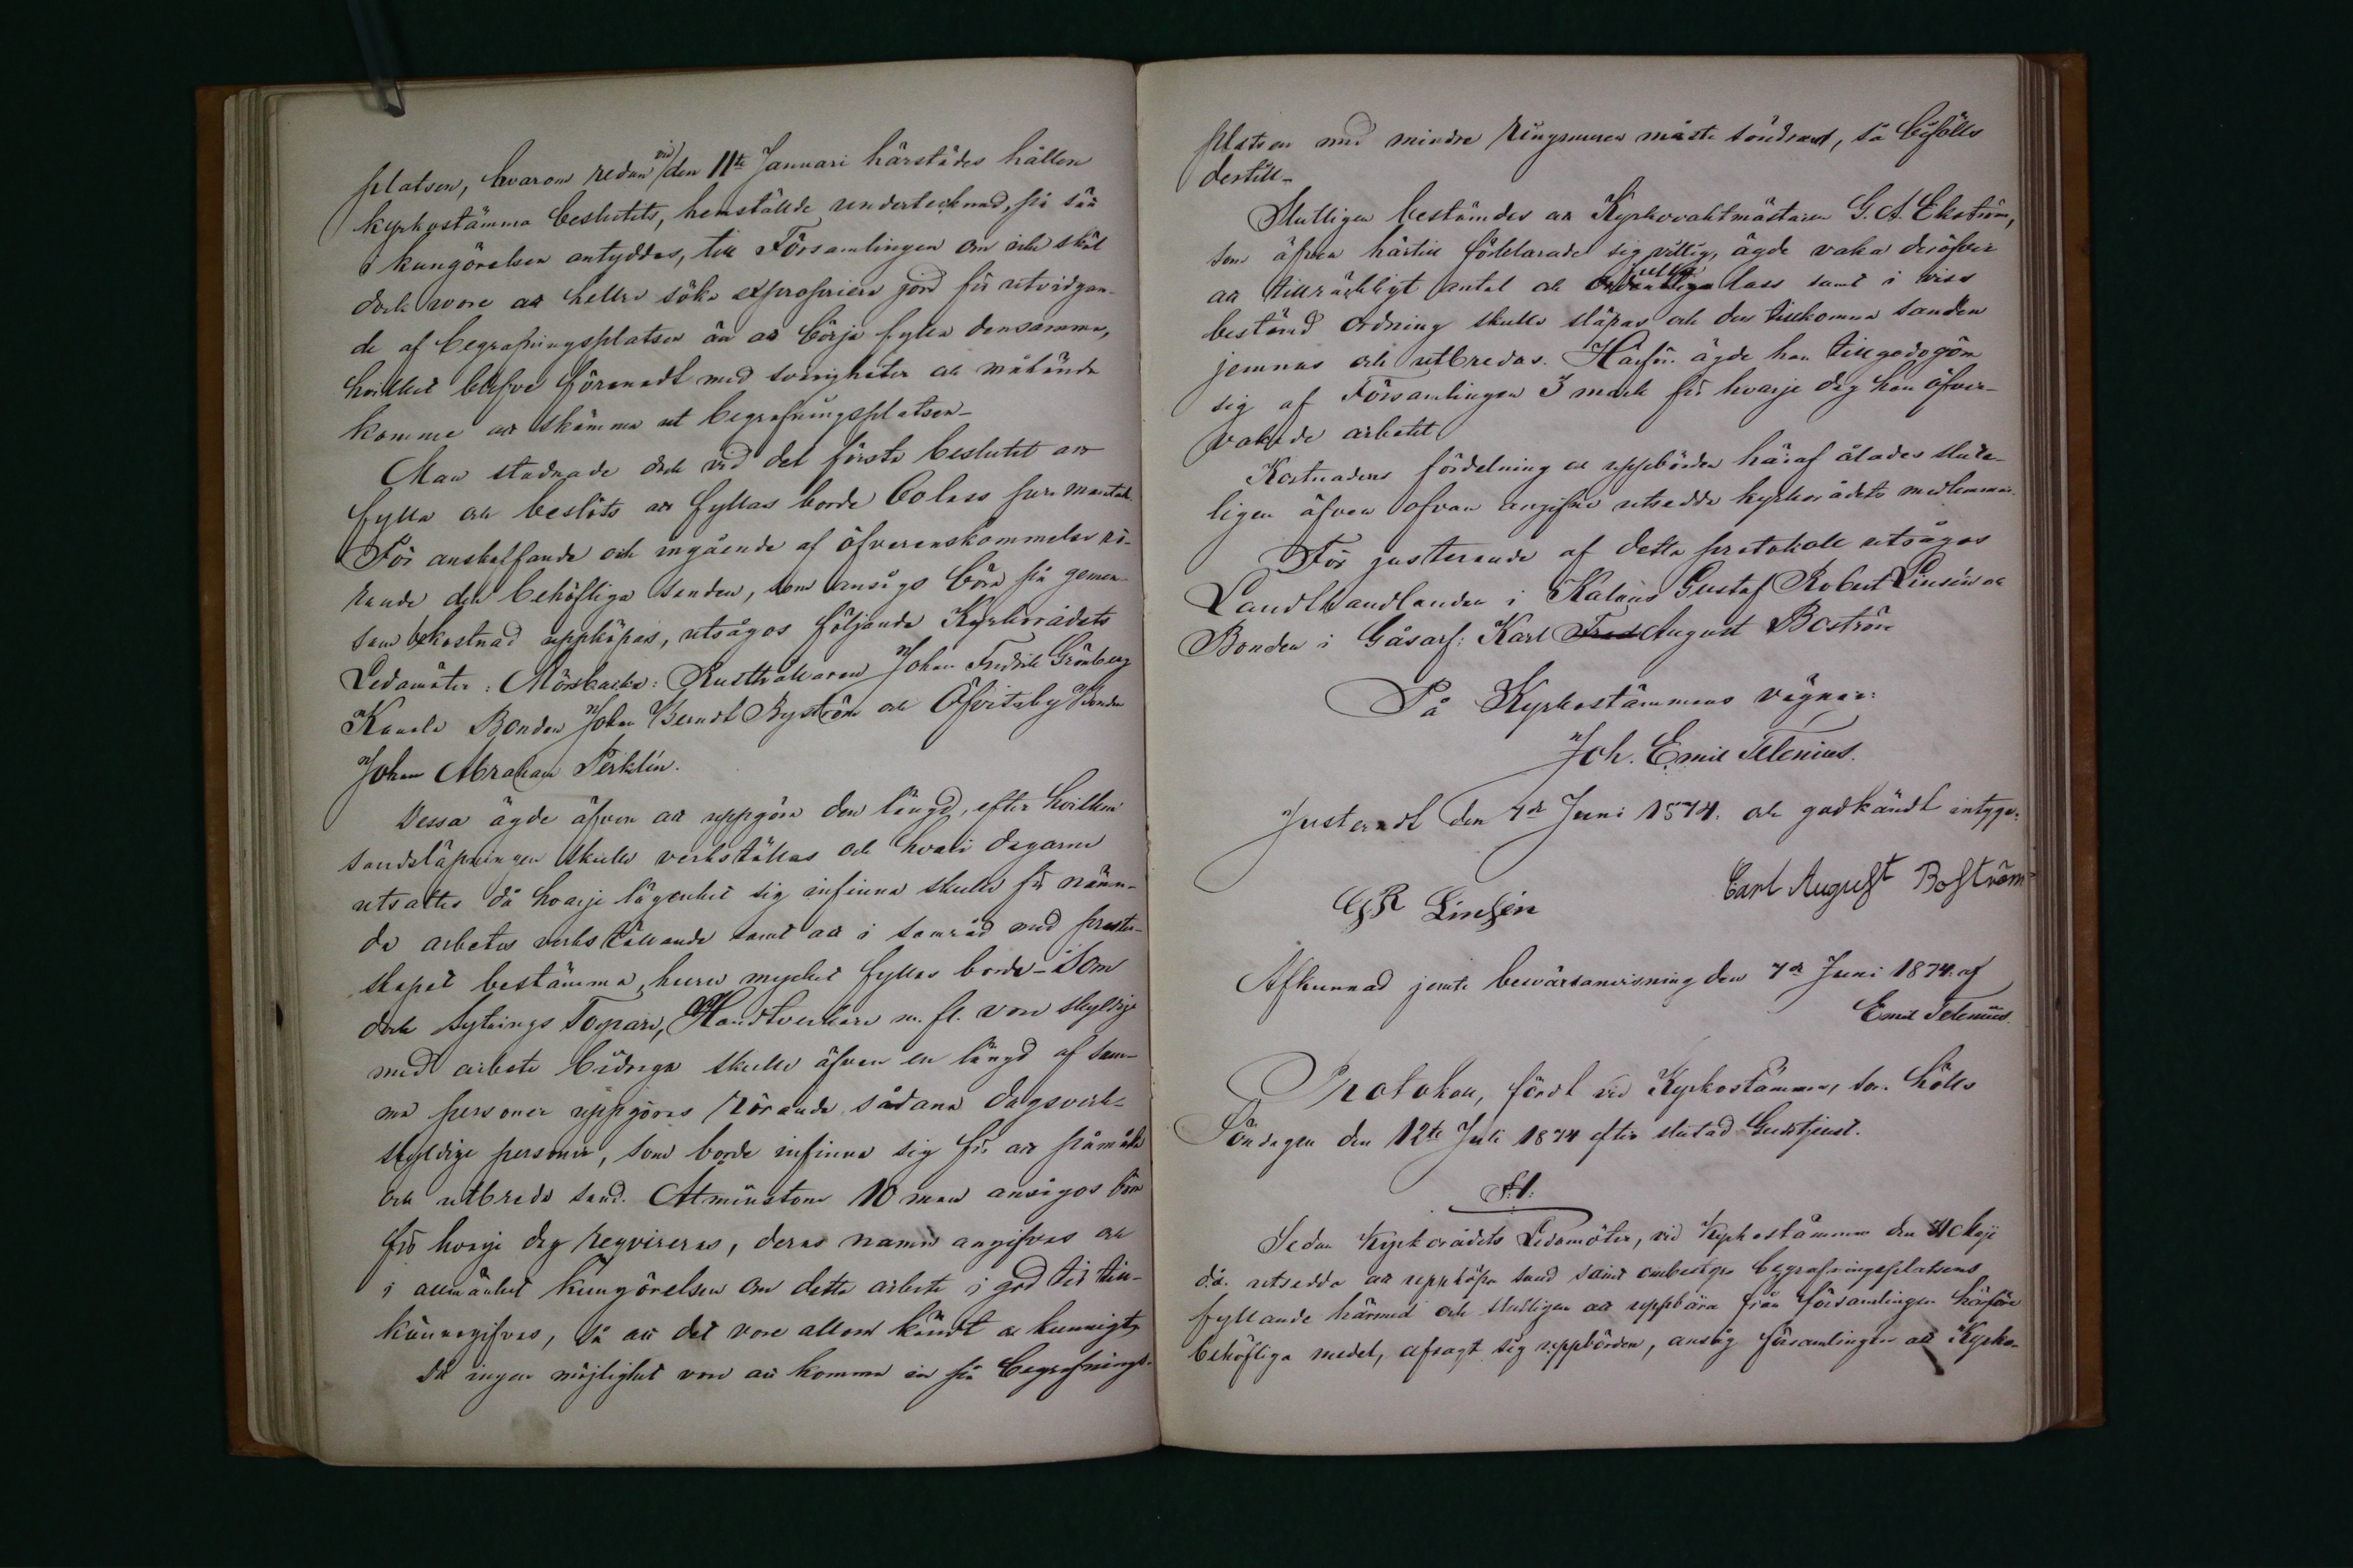 platsen, hvarom redan vid den 11te Januari härstädes hållen
kyrkostämma beslutits, hemställde undertecknad, på sätt
i kungörelsen antyddes, till Församlingen om icke skäl
dock vore att hellre söka expropriera jord för utvidgan-
de af begrafningsplatsen än att börja fylla densamma,
hvilket blefve förenadt med svårigheter och måhända
komme att skämma ut begrafningsplatsen-
Man stadnade dock vid det första beslutet att
fylla och beslöts att fyllas borde 60 lass per mantal.
För anskaffande och ingående af öfverenskommelse rö-
rande den behöfliga sanden, som ansågs böra på gemen-
sam bekostnad uppköpas, utsågos följande Kyrkorådets
Ledamöter: Mörsbacka: Rusthållaren Johan Fredrik Grönberg
Bonden Johan Berndt Byström och Öfvitsby Bonden
Johan Abraham Perklén.
Dessa ägde äfven att uppgöra den längd, efter hvilken
sandsläpningen skulle verkställas och hvari dagarne
utsattes då hvarje lägenhet sig infinna skulle för nämn-
de arbetes verkställande samt att i samråd med prester-
skapet bestämma, huru mycket fyllas borde - Som
dock Sytnings Torpare, Handtverkare m. fl. vore skyldige
med arbete bidraga skulle äfven en längd af sam-
ma personer uppgöras rörande sådana dagsverk-
skyldige personer, som borde infinna sig för att påmåka
och utbreda sand. Åtminstone 10 man ansågos böra
för hvarje dag reqvireras, deras namn angifvas och
i allmänhet kungörelsen om detta arbete i god tid till-
kännagifvas, så att det vore allom kändt och kunnigt,
Då ingen möjlighet vore att komma in på begrafnings-
platsen med mindre Ringmuren måste söndras, så bifölls
dertill-
Slutligen bestämdes att Kyrkovaktmästaren G. A. Ekström,
som äfven härtill förklarade sig villig, ägde vaka deröfver
att tillräckligt antal och fulla lass samt i viss
bestämd ordning skulle släpas och den tillkomna sanden
jemnas och utbredas. Härför ägde han tillgodogöra
sig af Församlingen 3 mark för hvarje dag han öfver-
vakade arbetet
Kostnadens fördelning och uppbörden häraf ålades slut-
ligen äfven ofvan angifne utsedda kyrkorådets medlemmar.
För justerande af detta protokoll utsågos
Landthandlanden i Kalnäs Gustaf Robert Linsén och
Bonden i Gåsarf: Karl Fred August Boström
På Kyrkostämmans vägnar:
Joh. Emil Telenius.
Justeradt den 7de Juni 1874. och godkändt intyga:
GR Linsén
Carl August Boström
Afkunnad jemte besvärsanvisning den 7de Juni 1874. af
Emil Telenius.
Protokoll, fördt vid Kyrkostämma, som hölls
Söndagen den 12te Juli 1874 efter slutad Gudstjenst.
§.1.
Sedan Kyrkorådets Ledamöter, vid Kyrkostämman den Maji
d.å. utsedda att uppköpa sand samt ombestyra begrafningsplatsens
fyllande härmed och slutligen att uppbära från församlingen härföre
behöfliga medel, afsagt sig uppbörden, ansåg församlingen att Kyrko-